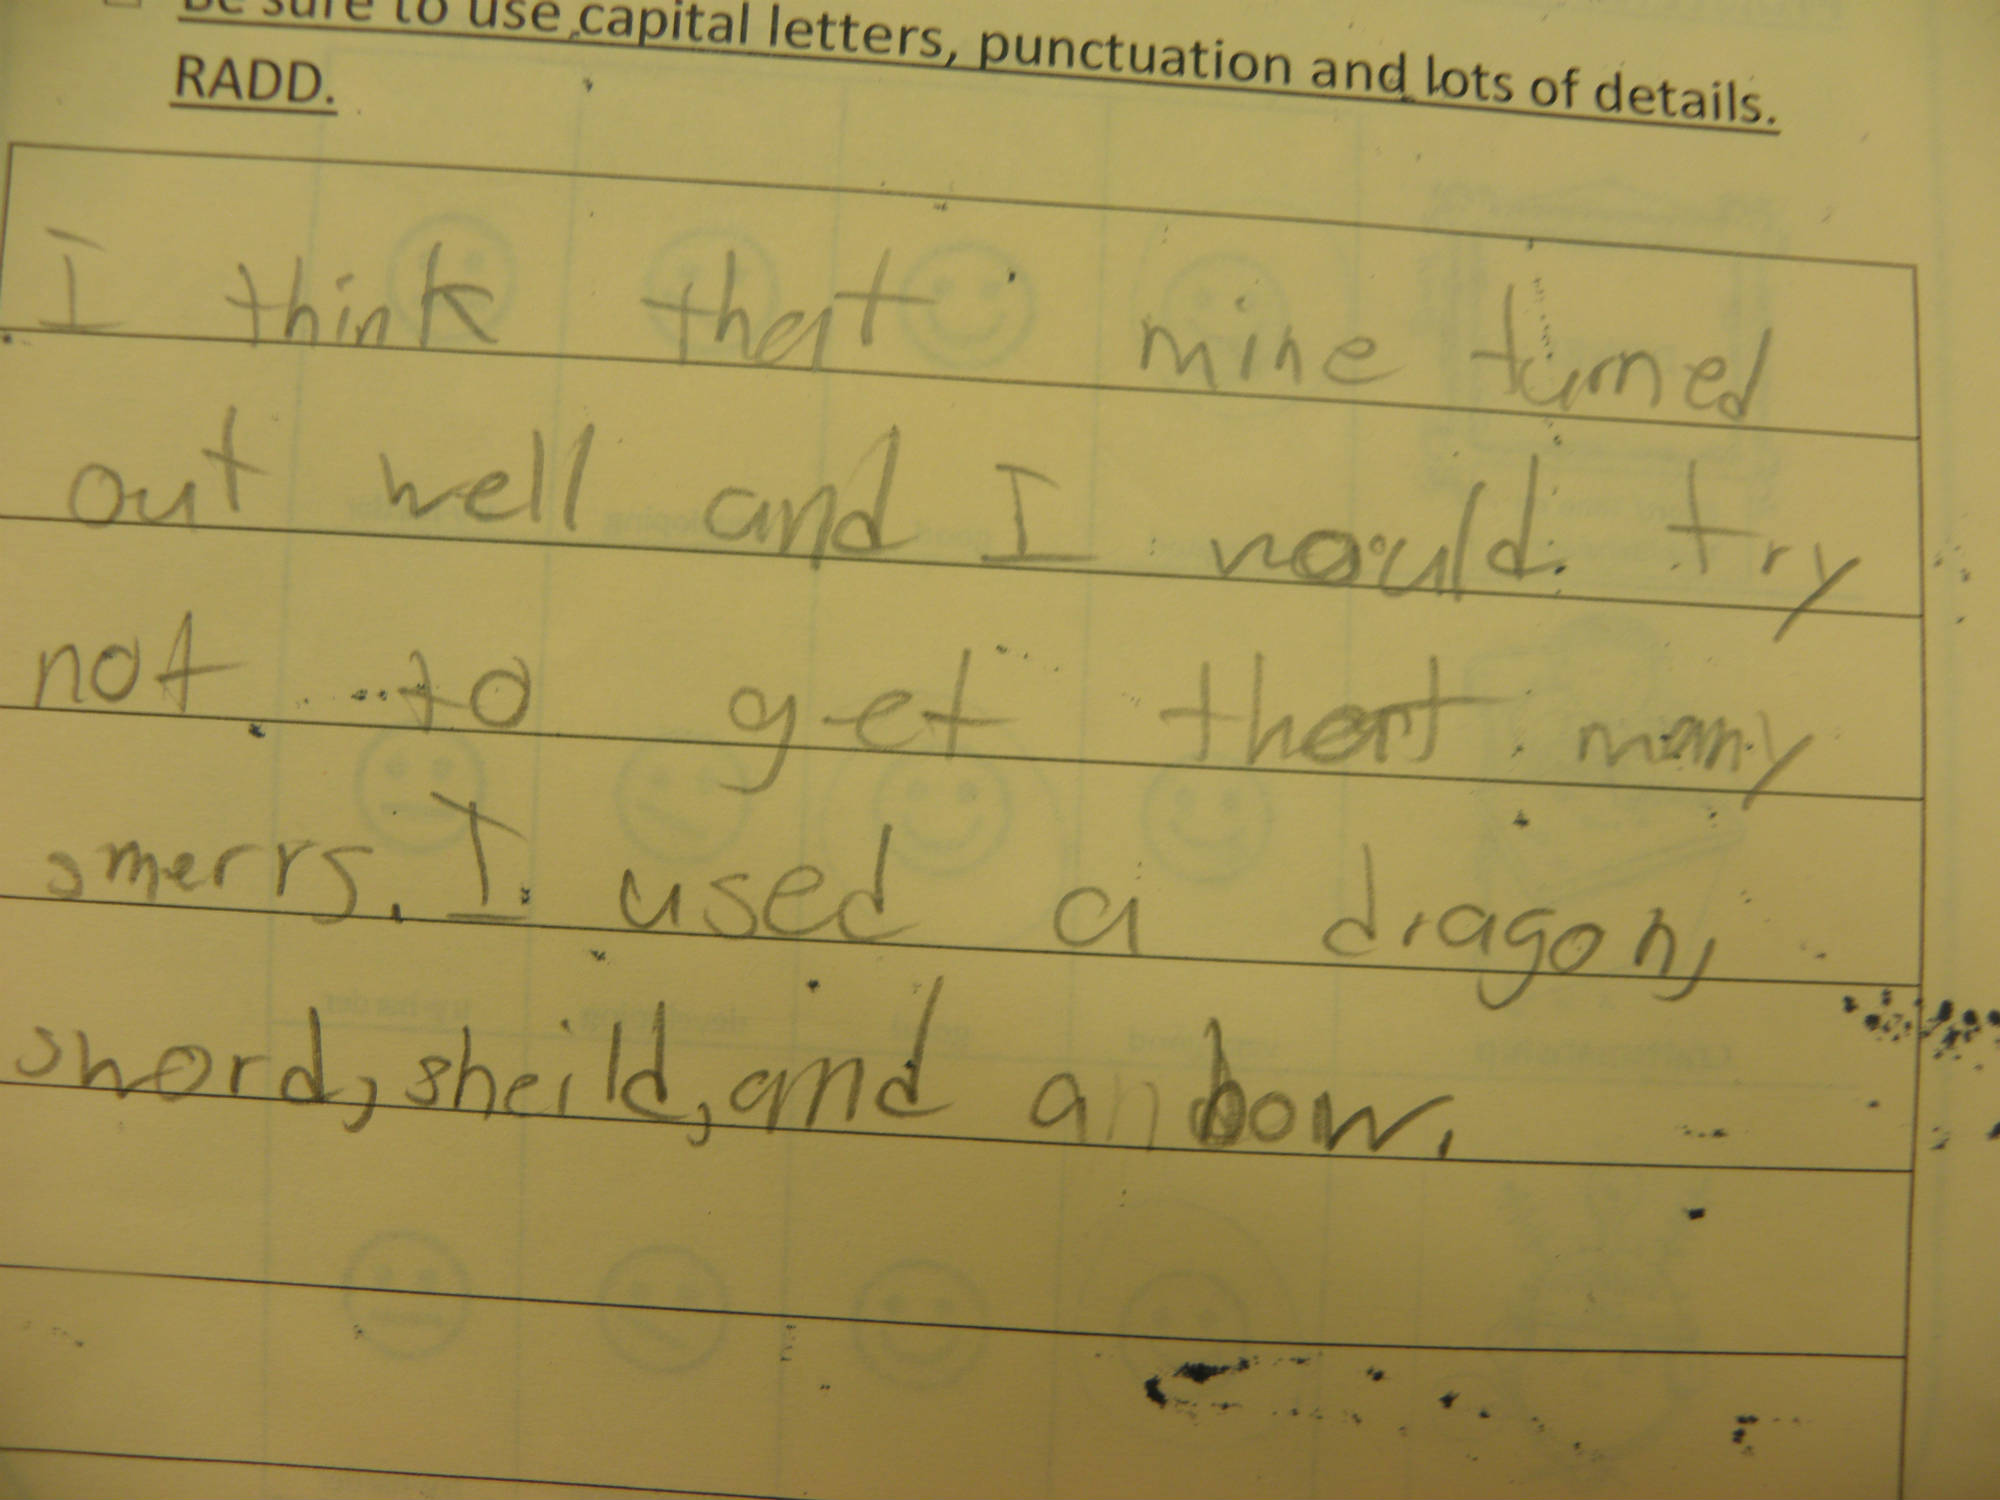 Be sure to use capital letters, punctuation and lots of details.
RADD.
I think that mine turned
out well and I would try
not to get that many
smerrs. I used a dragon,
sword, sheild, and an bow.